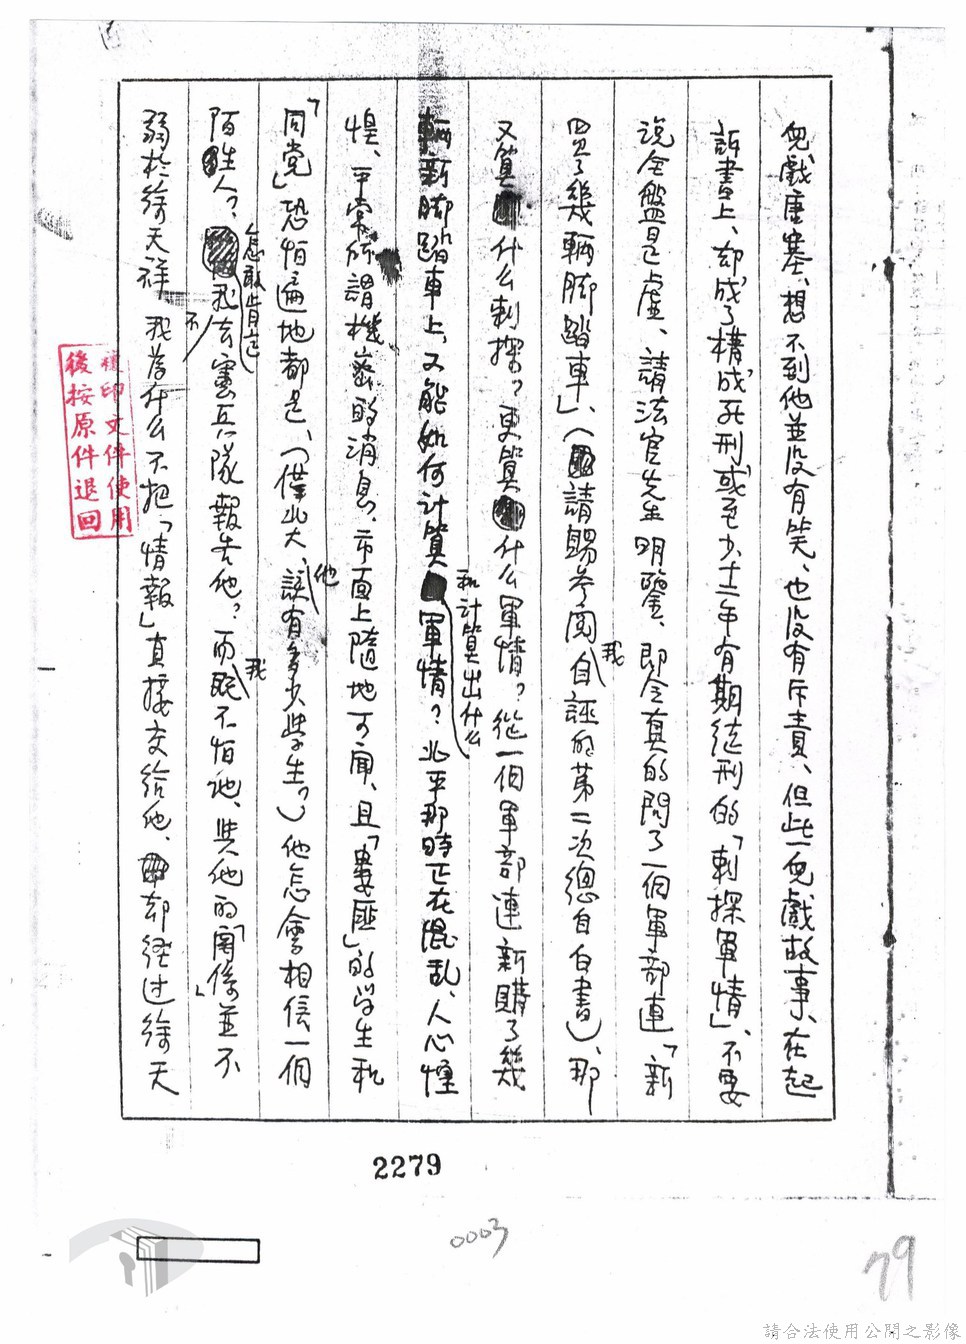 兒戲唐塞、想不到他並沒有笑、也沒有斥責、但此一兒戲故事、在起
訴書上、却成了構成死刑或至少十二年有期徒刑的「刺探軍情」、不要
說全盤是虛、請法官先生明鑒、即令真的問了一個軍部連「新
買了幾輛脚踏車」、(請賜參閱我自誣的第二次總自白書)、那
又算什么刺探？更算什么軍情？從一個軍部連新購了幾
輛新脚踏車上、又能如何計算和計算出什么軍情？北平那時正在混乱、人心惶
惶、平常所謂機密的消息、市面上隨地可聞、且「婁匪」的学生和
「同党」恐怕遍地都是、(僅北大、他該有多少学生。)他怎會相信一個
陌生人？我怎敢肯定不去憲兵隊報告他？而我既不怕他、與他的「關係並不
弱於徐天祥」我为什么不把「情報」直接交給他、却经过徐天
複印文件使用
後按原件退回
2279
0003
79
請合法使用公開之影像